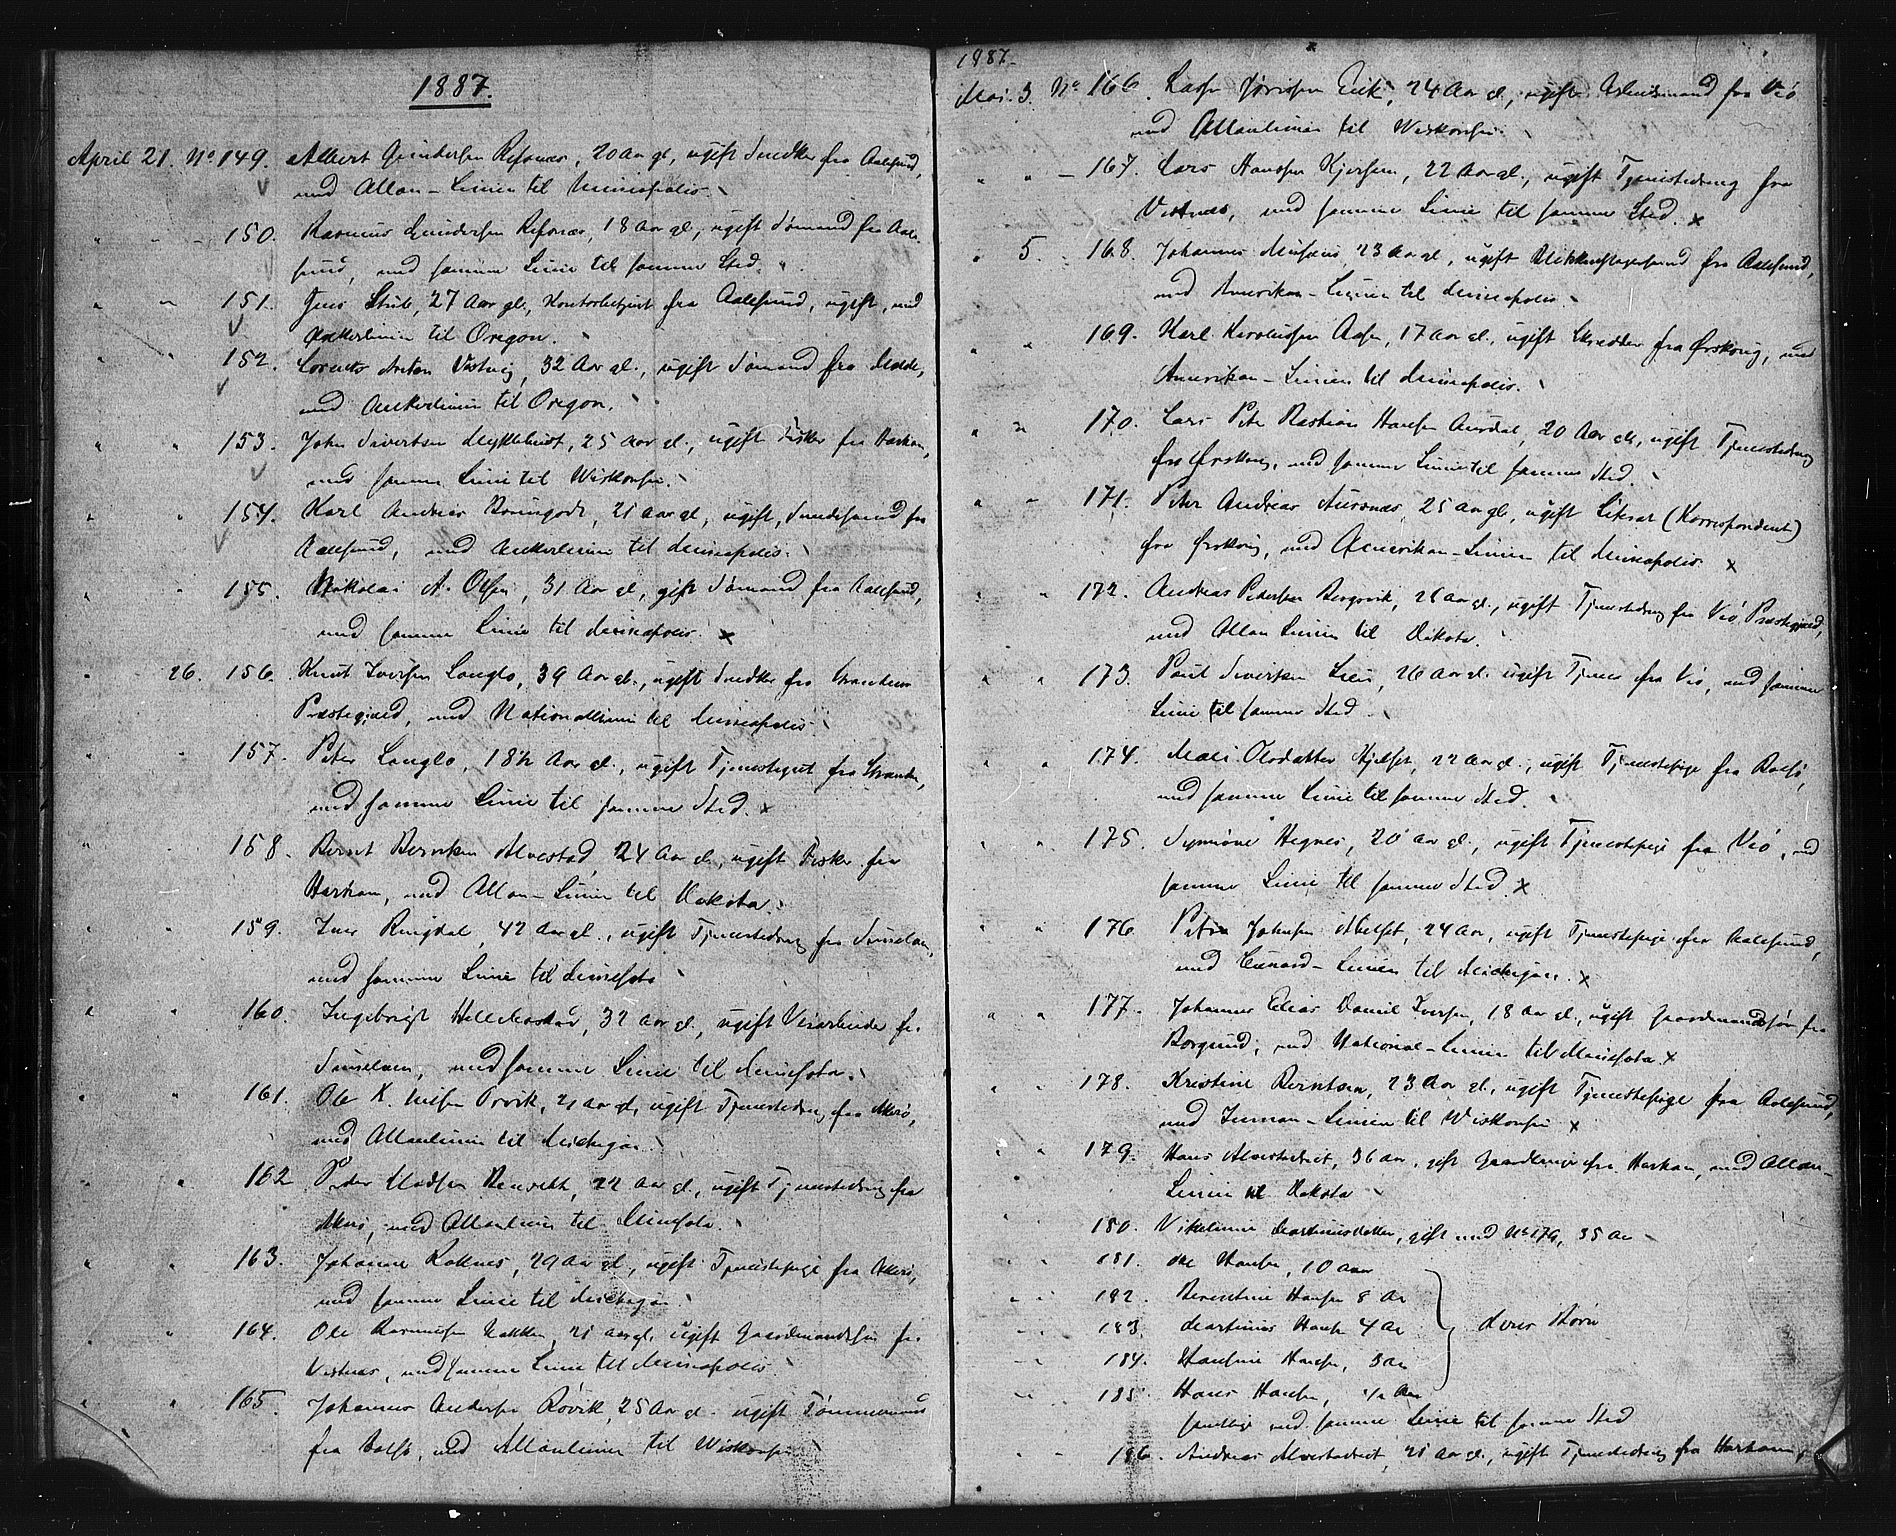 1887.
April 21. No 149. Albert Gundersen Refsnæs, 20 Aar gl., ugift Snedker fra Aalesund,
med Allan-Linien til Minneapolis.
" " - 150. Rasmus Gundersen Refsnæs, 18 Aar gl., ugift Sømand fra Aale-
sund, med samme Linie til samme Sted.
" " 151. Jens Strib, 27 Aar gl., Kontorbetjent fra Aalesund, ugift, med
Ankerlinien til Oregon.
" " 152. Lorents Anton Vestvig, 32 Aar gl., ugift Sømand fra Molde,
med Ankerlinien til Oregon.
" " 153. John Sivertsen Myklebust, 25 Aar gl., ugift Fisker fra Harham,
med samme Linie til Wiskonsin.
" " 154. Karl Andreas, 21 Aar gl., ugift, fra
Aalesund, med Ankerlinien til Minneapolis.
" " 155. Nikolai A. Olsen, 31 Aar gl., gift Sømand fra Aalesund,
med samme Linie til Minneapolis. x
" 26. 156. Knut Iversen Langlo, 39 Aar gl., ugift Snedker fra Stranden
Præstegjæld, med Nationallinien til Minneapolis.
" " 157. Peter Langlo, 18½ Aar gl., ugift Tjenestegut fra Stranden,
med samme Linie til samme Sted. x
" 158. Bernt Berntsen Alvestad, 24 Aar gl., ugift Fisker fra
Harham, med Allan-Linien til Dakota.
" " 159. Iver Ringdal, 42 Aar gl., ugift Tjenestedreng fra Sunelven,
med samme Linie til Minnesota
" " 160. Ingebrigt Hellebostad, 32 Aar gl., ugift fra
Sunelven, med samme Linie til Minnesota.
" " 161. Ole K. Nilsen Orvik, 21 Aar gl., ugift Tjenestedreng fra Akerø,
med Allanlinien til Michigan.
" " 162 Peder Madsen, 22 Aar gl., ugift Tjenestedreng fra
Akerø, med Allanlinien til Minnesota.
" " 163. Johanne Roknes, 29 Aar gl., ugift Tjenestepige fra Akerø,
med samme Linie til Michigan.
" " 164. Ole Rasmussen Nakken, 21 Aar gl., ugift Gaardmandssøn fra
Vestnæs, med samme Linie til Minneapolis
" " 165. Johannes Andersen Røvik, 25 Aar gl. ugift Tømmermand
fra Bolsø, med Allanlinien til Wiskonsin
1887.
Mai. 3. No 166. Lasse Jørissen Eik, 24 Aar gl., ugift Arbeidsmand fra Vø
med Allanlinien til Wiskonsin.
" " - 167. Lars Hansen Kjersem, 22 Aar gl., ugift Tjenestedreng fra
Vestnæs, med samme Linie til samme Sted. x
" 5. - 168. Johannes Musæus, 23 Aar gl., ugift Blikkenslagersvend fra Aalesund,
med Amerikan-Linien til Minneapolis.
" " 169. Karl Karolussen Aasen, 17 Aar gl., ugift Skrædder fra Ørskoug, med
Amerikan-Linien til Minneapolis.
" " 170. Lars Peter Bastian Hansen Aurdal, 20 Aar gl., ugift Tjenestedreng
fra Ørskoug, med samme Linie til samme Sted.
" " 171. Peter Andreas Aursnæs, 25 Aar gl., ugift Literat (Korrespondent)
fra Ørskoug, med Amerikan-Linien til Minneapolis x
" " 172. Andreas Pedersen Bergsvik, 26 Aar gl., ugift Tjenestedreng fra Vø Præstegjæld,
med Allan Linien til Dakota.
" " 173. Poul Sivertsen Lien, 26 Aar gl. ugift Tjener fra Vø, med samme
Linie til samme Sted.
" " 174. Mali Olsdatter Hjelset, 22 Aar gl., ugift Tjenestepige fra Bolsø,
med samme Linie til samme Sted.
" " 175. Synnøve Hegnes, 20 Aar gl., ugift Tjenestepige fra Vø, med
samme Linie til samme Sted x
" " 176 Petra Johnsen Abelset, 24 Aar, ugift Tjenestepige fra Aalesund,
med Cunard-Linien til Michigan. x
" " 177. Johannes Elias Daniel Iversen, 18 Aar gl., ugift Gaardmandssøn fra
Borgund, med National-Linien til Minnesota x
" " 178. Kristine Berntsen, 23 Aar gl., ugift Tjenestepige fra Aalesund,
med Inman-Linien til Wiskonsin x
" " 179. Hans Alvestadset, 36 Aar, gift fra Harham, med Allan-
Linien til Dakota
" " 180. Vikelinne Martinusdatter, gift med No 179, 35 Aar
" " 181. Ole Hansen, 10 Aar
" " 182. Berentine Hansen 8 Aar
" " 183. Martinus Hansen 4 Aar deres Børn
" " 184. Hansine Hansen, 3 Aar
" " 185. Hans Hansen, ½ Aar
samtlige med samme Linie til samme Sted
" " 186. Andreas Alvestadset, 21 Aar gl., ugift Tjenestedreng fra Harham,